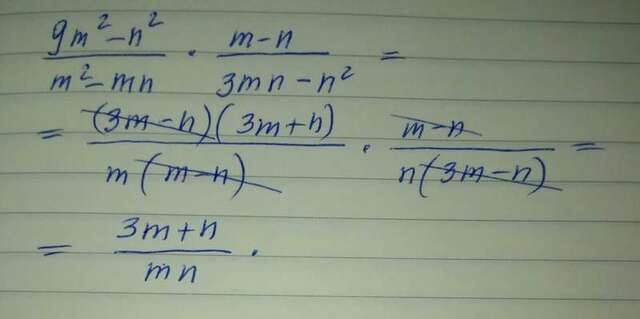 (9m² - n²)/(m² - mn) · (m - n)/(3mn - n²) =
= ((3m - n)(3m + n))/(m(m - n)) · (m - n)/(n(3m - n)) =
= (3m + n)/(mn) .